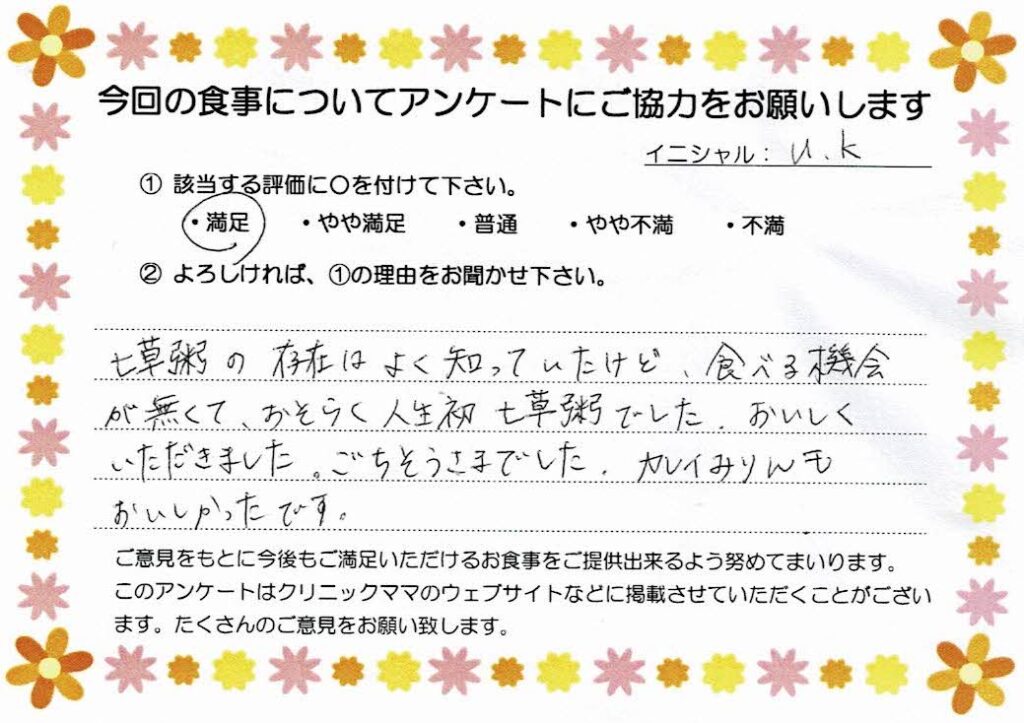 今回の食事についてアンケートにご協力をお願いします
イニシャル： U.K
① 該当する評価に〇を付けて下さい。
・満足 ・やや満足 ・普通 ・やや不満 ・不満
② よろしければ、①の理由をお聞かせ下さい。
七草粥の存在はよく知っていたけど、食べる機会
が無くて、おそらく人生初七草粥でした。おいしく
いただきました。ごちそうさまでした。カレイみりんも
おいしかったです。
ご意見をもとに今後もご満足いただけるお食事をご提供出来るよう努めてまいります。
このアンケートはクリニックママのウェブサイトなどに掲載させていただくことがござい
ます。たくさんのご意見をお願い致します。